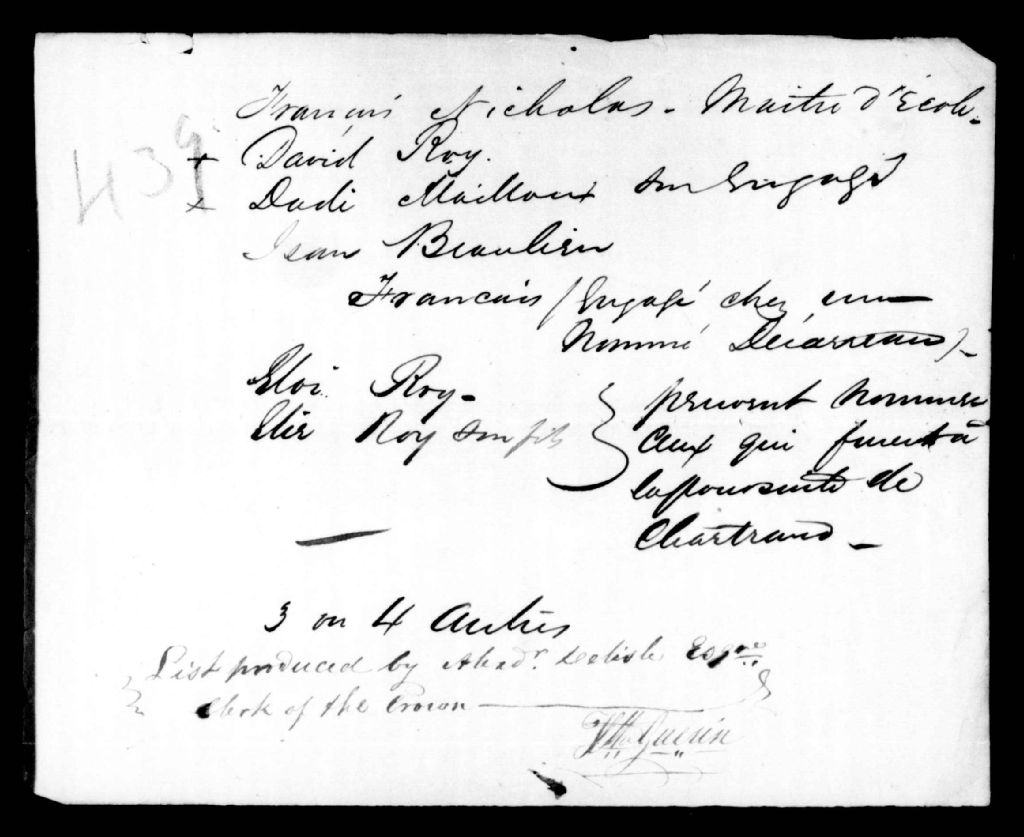 François Nicholas - Maitre d'École -
+ David Roy.
x Dodi Mailloux son Engagé
Jean Beaulieu
Francais / Engagé chez un
Nommé Décarreau) -
Eloi Roy -
Elie Roy son fils
peuvent nommer
Ceux qui furent à
la poursuite de
Chartrand -
3 ou 4 autres
List produced by Alexdr. Delisle Esqre
Clerk of the Crown
Guerin
439